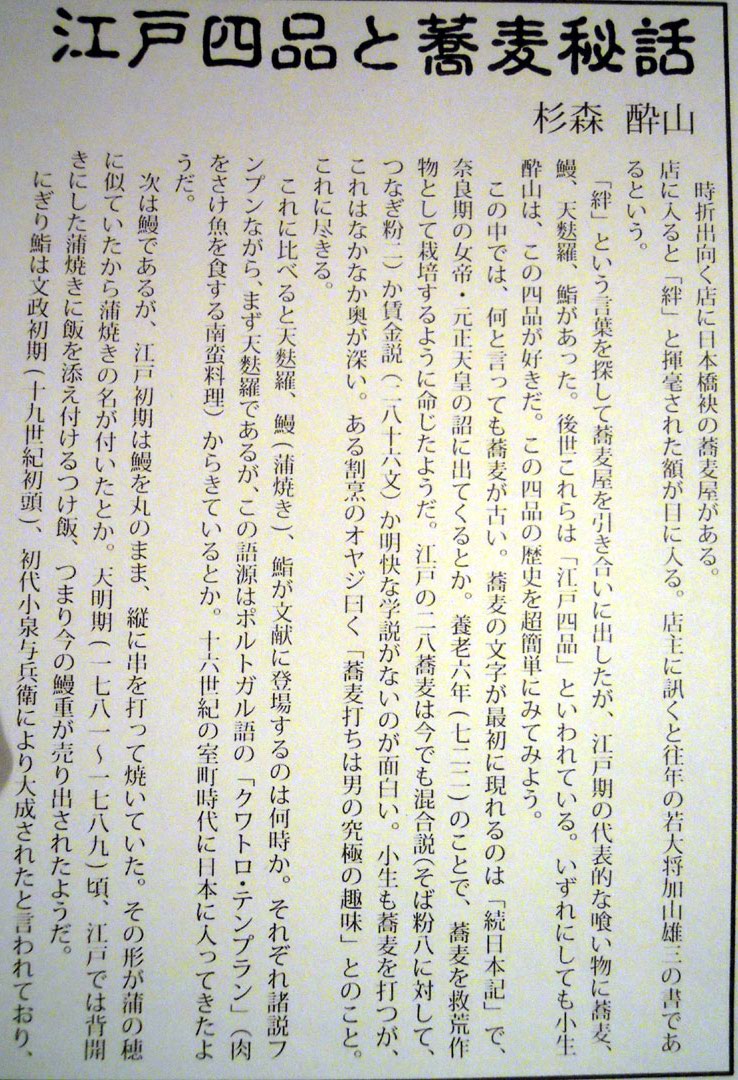 江戸四品と蕎麦秘話
杉森 酔山
時折出向く店に日本橋袂の蕎麦屋がある。
店に入ると「絆」と揮毫された額が目に入る。店主に訊くと往年の若大将加山雄三の書であ
るという。
「絆」という言葉を探して蕎麦屋を引き合いに出したが、江戸期の代表的な喰い物に蕎麦、
鰻、天麩羅、鮨があった。後世これらは「江戸四品」といわれている。いずれにしても小生
酔山は、この四品が好きだ。この四品の歴史を超簡単にみてみよう。
この中では、何と言っても蕎麦が古い。蕎麦の文字が最初に現れるのは「続日本記」で、
奈良期の女帝・元正天皇の詔に出てくるとか。養老六年(七二二)のことで、蕎麦を救荒作
物として栽培するように命じたようだ。江戸の二八蕎麦は今でも混合説(そば粉八に対して、
つなぎ粉二)か賃金説(二八十六文)か明快な学説がないのが面白い。小生も蕎麦を打つが、
これはなかなか奥が深い。ある割烹のオヤジ曰く「蕎麦打ちは男の究極の趣味」とのこと。
これに尽きる。
これに比べると天麩羅、鰻(蒲焼き)、鮨が文献に登場するのは何時か。それぞれ諸説フ
ンプンながら、まず天麩羅であるが、この語源はポルトガル語の「クワトロ・テンプラン」(肉
をさけ魚を食する南蛮料理)からきているとか。十六世紀の室町時代に日本に入ってきたよ
うだ。
次は鰻であるが、江戸初期は鰻を丸のまま、縦に串を打って焼いていた。その形が蒲の穂
に似ていたから蒲焼きの名が付いたとか。天明期(一七八一〜一七八九)頃、江戸では背開
きにした蒲焼きに飯を添え付けるつけ飯、つまり今の鰻重が売り出されたようだ。
にぎり鮨は文政初期(十九世紀初頭)、初代小泉与兵衛により大成されたと言われており、